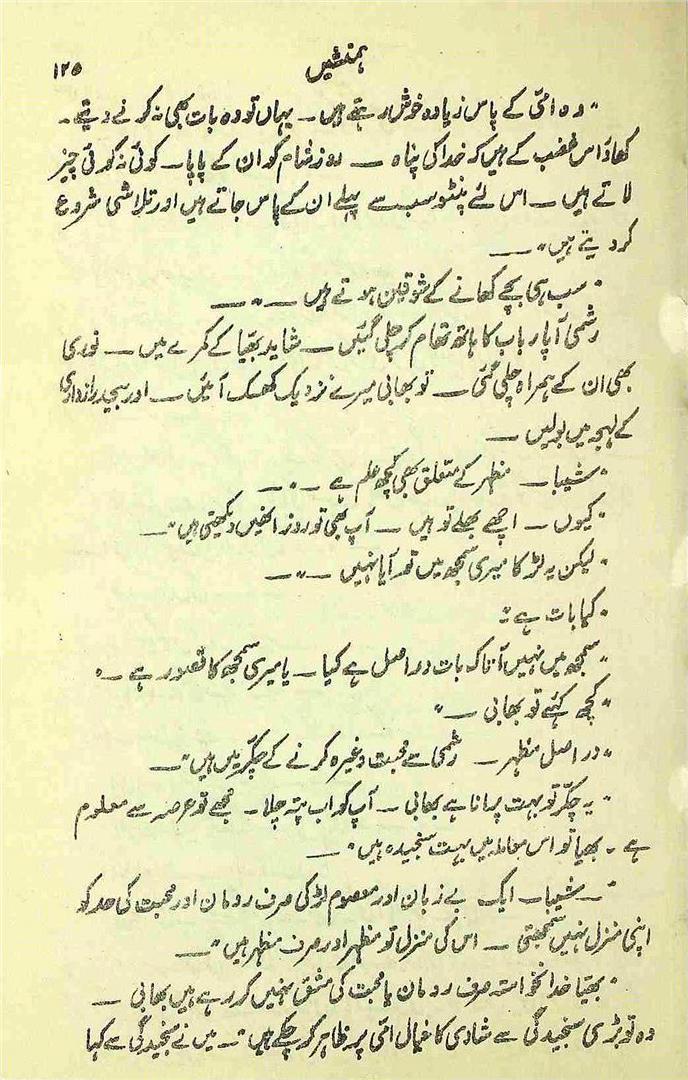 ہمنشیں ۱۲۵
"وہ امّی کے پاس زیادہ خوش رہتے ہیں۔ یہاں تو وہ بات بھی نہ کرنے دیتے۔
کھاؤ اس غضب کے ہیں کہ خدا کی پناہ ــ روز شام کو ان کے پاپا۔ کوئی نہ کوئی چیز
لاتے ہیں ــ اس لئے پنٹو سب سے پہلے ان کے پاس جاتے ہیں اور تلاشی شروع
کر دیتے ہیں" ــ
"سب ہی بچے کھانے کے شوقین ہوتے ہیں ــ" ــ
رشمی آپا رباب کا ہاتھ تھام کر چلی گئیں ــ شاید بھیّا کے کمرے میں ــ نوری
بھی ان کے ہمراہ چلی گئی ــ تو بھابی میرے نزدیک کھسک آئیں ــ اور بیحد رازداری
کے لہجہ میں بولیں ــ
"شیبا۔ مظہر کے متعلق بھی کچھ علم ہے ــ" ــ
"کیوں ــ اچھے بھلے تو ہیں ــ آپ بھی تو روز انھیں دیکھتی ہیں" ــ
"لیکن یہ لڑکا میری سمجھ میں تو آیا نہیں ــ" ــ
"کیا بات ہے"؟
"سمجھ میں نہیں آتا کہ بات دراصل ہے کیا ــ یا میری سمجھ کا قصور ہے ــ"
"کچھ کہئے تو بھابی ــ"
"دراصل مظہر ــ رشمی سے محبت وغیرہ کرنے کے چکّر میں ہیں" ــ
"یہ چکّر تو بہت پرانا ہے بھابی ــ آپ کو اب پتہ چلا۔ مجھے تو عرصہ سے معلوم
ہے۔ بھیا تو اس معاملہ میں بہت سنجیدہ ہیں" ــ
"ــ شیبا۔ ایک بے زبان اور معصوم لڑکی صرف رومان اور محبت کی حد کو
اپنی منزل نہیں سمجھتی ــ اس کی منزل تو مظہر اور صرف مظہر ہیں" ــ
"بھیّا خدانخواستہ صرف رومان یا محبت کی مشق نہیں کر رہے ہیں بھابی ــ
وہ تو بڑی سنجیدگی سے شادی کا خیال امّی پر ظاہر کر چکے ہیں" ــ میں نے سنجیدگی سے کہا